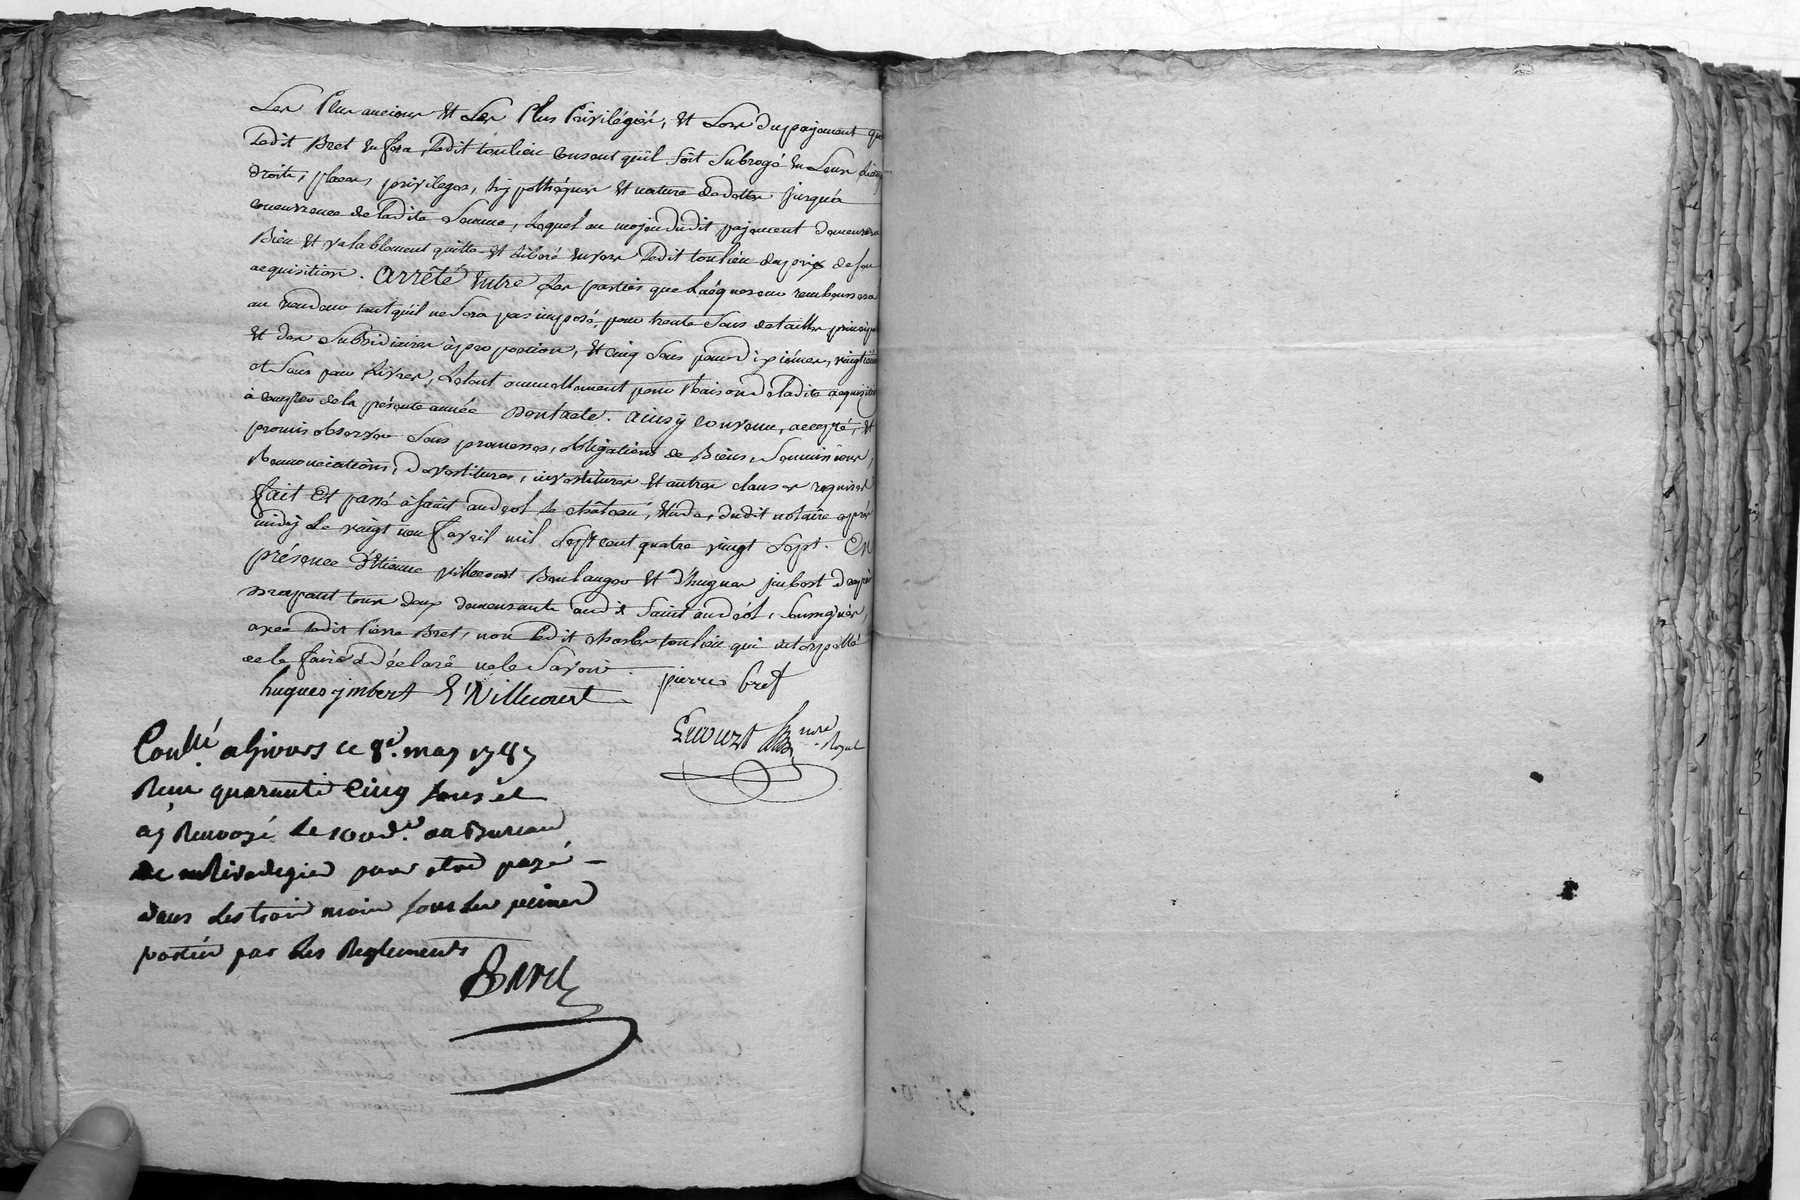 Les Plus anciens et les Plus Privilégiés, et Lors du payement que
Ledit Bret en fera, Ledit toulieu consent quil soit subrogé en Leur Lieu
droits, places, privileges, hypothéques et nature de dettes jusquá
concurrence de Ladite somme, Lequel au mojen dudit payement demeurera
Bien et valablement quitte et Libéré envers Ledit toulieu du prix de son
acquisition. arrêté Entre Les parties que L'aéquereur remboursera
au vendeur tant qu'il ne sera pas imposé, pour trente sous de tailles
et des subsidiaires à proportion, et cinq sous pour dixiémes, vingtiémes
et sous pour Livres, Le tout annuellement pour Raison de Ladite
à compter de la présente année Dont acte. ainsy convenu, accepté, et
promis observer sous promesses, obligations de Biens, soumissions,
Rennonciations, devestitures, investitures et autres clauses requises
fait et passé à saint andeol le château, Etude, dudit notaire après
midy Le vaingt neuf avril mil sept cent quatre vingt sept. En
présence d'Etienne villecourt Boulanger et d'hugues jmbert
tous deux demeurants audit saint andéol, soussignés,
avec Ledit Pierre Bret, non Ledit charles toulieu qui interpellé
de le faire a Déclaré ne le savoir
hugues jmbert E Villecourt pierre bret
nore Royal
Conllé a Givors ce 8e. may 1787
Reçu quarante Cinq sous et
ay Renvoyé Le 100e. au Bureau
de Rivedegier pour etre payé
dans Les trois mois sous Les peines
portées par Les Reglements